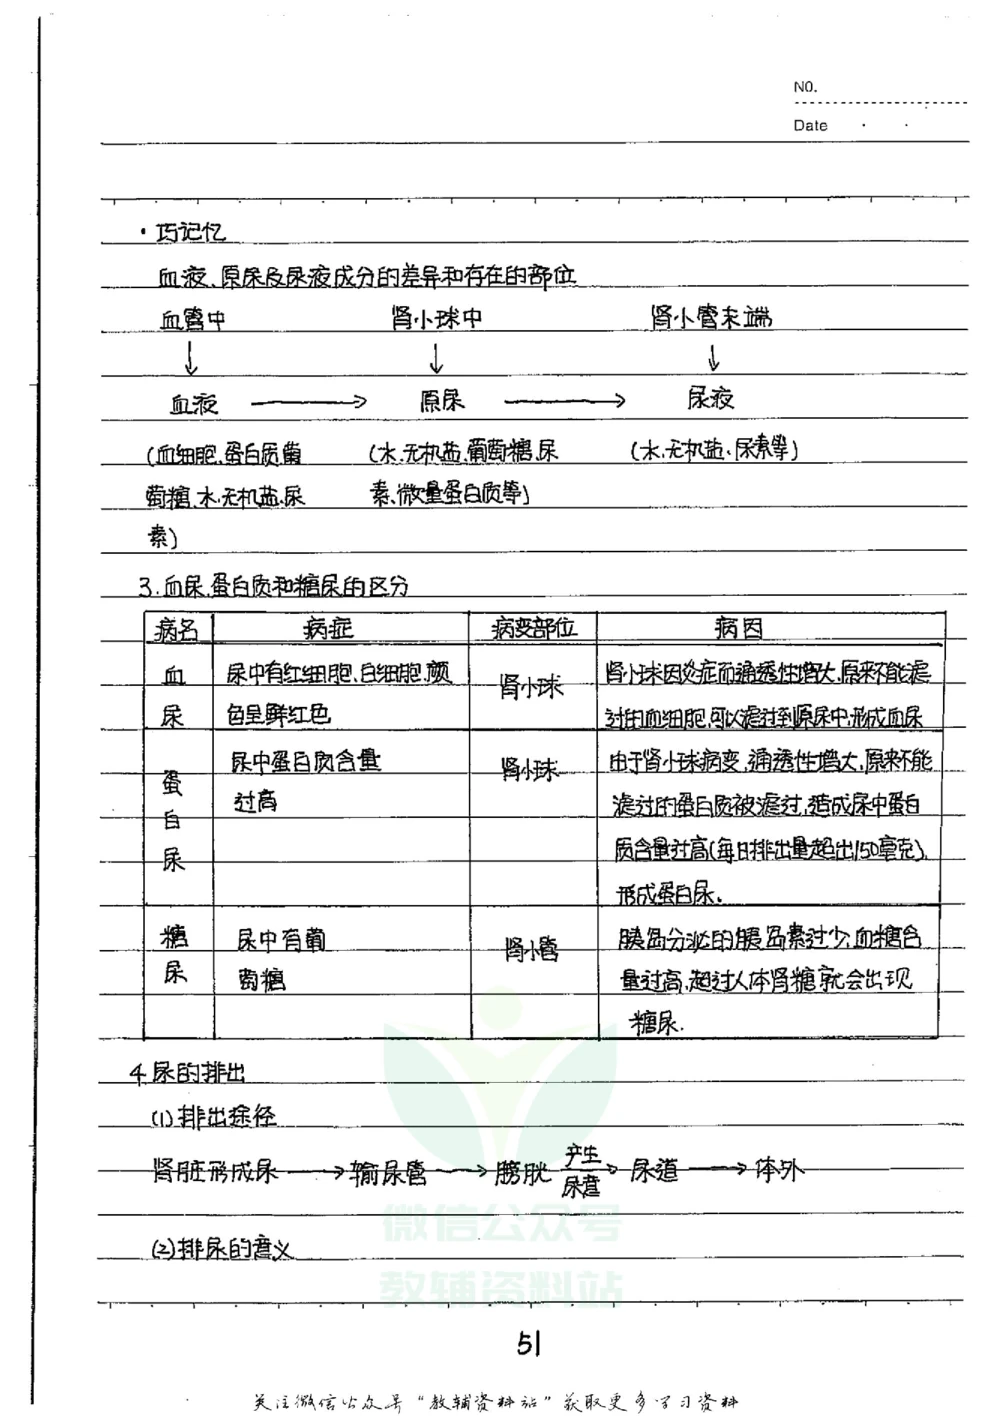 NO.
Date
·巧记忆
血液、原尿及尿液成分的差异和存在的部位
血管中 肾小球中 肾小管末端
↓ ↓ ↓
血液 → 原尿 → 尿液
(血细胞、蛋白质葡 (水、无机盐、葡萄糖、尿 (水、无机盐、尿素等)
萄糖、水、无机盐、尿 素、微量蛋白质等)
素)
3.血尿、蛋白质和糖尿的区分
病名 病症 病变部位 病因
血 尿中有红细胞、白细胞、颜 肾小球 肾小球因炎症而通透性增大,原来不能滤
尿 色呈鲜红色 过的血细胞,可以滤过到原尿中,形成血尿
尿中蛋白质含量 肾小球 由于肾小球病变,通透性增大,原来不能
蛋 过高 滤过的蛋白质被滤过,造成尿中蛋白
白 质含量过高(每日排出量超出150毫克),
尿 形成蛋白尿。
糖 尿中有葡 肾小管 胰岛分泌的胰岛素过少,血糖含
尿 萄糖 量过高,超过人体肾糖就会出现
糖尿.
4.尿的排出
(1)排出途径
肾脏形成尿 → 输尿管 → 膀胱 产生尿意→ 尿道 → 体外
(2)排尿的意义
微信公众号
教辅资料站
51
关注微信公众号“教辅资料站”获取更多学习资料